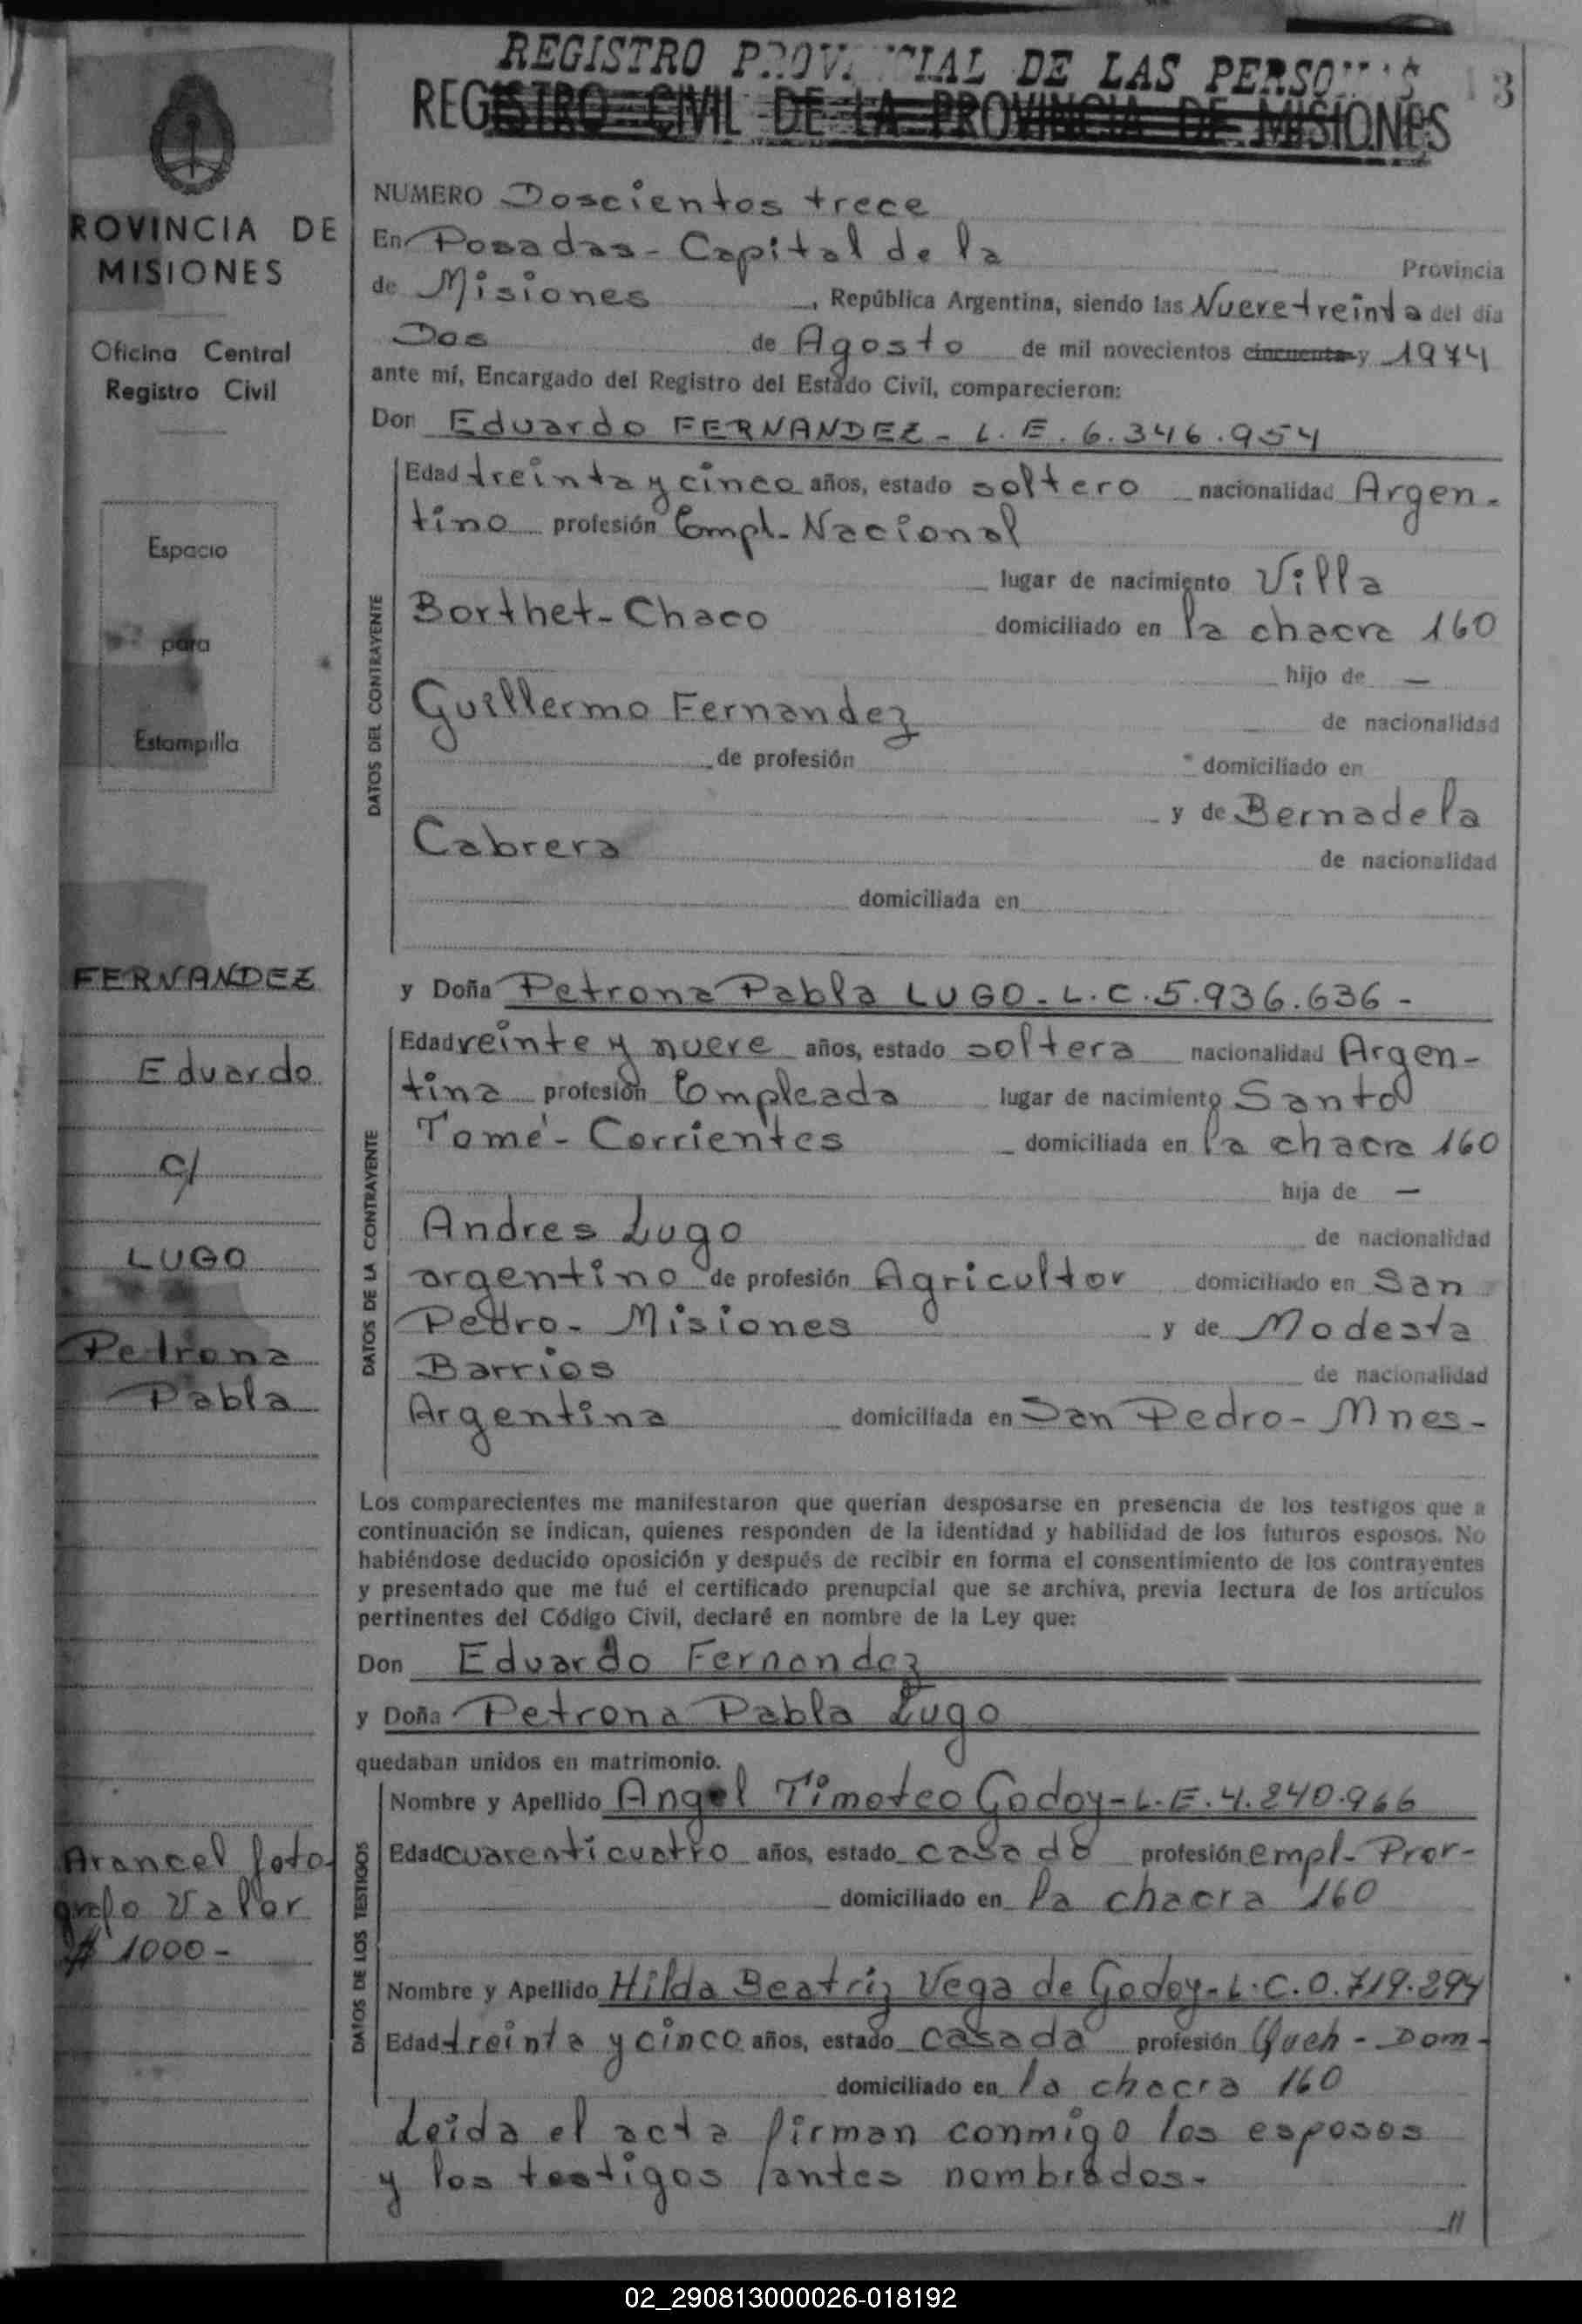 REGISTRO PROVINCIAL DE LAS PERSONAS
REGISTRO CIVIL DE LA PROVINCIA DE MISIONES
PROVINCIA DE
MISIONES
Oficina Central
Registro Civil
Espacio
para
Estampilla
FERNANDEZ
Eduardo
c/
LUGO
Petrona
Pabla
Arancel foto
grafo Valor
$ 1000-
NUMERO Doscientos trece
En Posadas - Capital de la Provincia
de Misiones, República Argentina, siendo las Nueve treinta del día
Dos de Agosto de mil novecientos cincuenta y 1974
ante mí, Encargado del Registro del Estado Civil, comparecieron:
Don Eduardo FERNANDEZ - L. E. 6.346.954
DATOS DEL CONTRAYENTE
Edad treinta y cinco años, estado soltero nacionalidad Argen-
tino profesión Empl. Nacional
lugar de nacimiento Villa
Borthet - Chaco domiciliado en la chacra 160
hijo de —
Guillermo Fernandez de nacionalidad
de profesión domiciliado en
y de Bernadela
Cabrera de nacionalidad
domiciliada en
y Doña Petrona Pabla LUGO - L. C. 5.936.636 -
DATOS DE LA CONTRAYENTE
Edad veinte y nueve años, estado soltera nacionalidad Argen-
tina profesión Empleada lugar de nacimiento Santo
Tomé - Corrientes domiciliada en la chacra 160
hija de —
Andres Lugo de nacionalidad
argentino de profesión Agricultor domiciliado en San
Pedro - Misiones y de Modesta
Barrios de nacionalidad
Argentina domiciliada en San Pedro - Mnes -
Los comparecientes me manifestaron que querían desposarse en presencia de los testigos que a
continuación se indican, quienes responden de la identidad y habilidad de los futuros esposos. No
habiéndose deducido oposición y después de recibir en forma el consentimiento de los contrayentes
y presentado que me fué el certificado prenupcial que se archiva, previa lectura de los artículos
pertinentes del Código Civil, declaré en nombre de la Ley que:
Don Eduardo Fernandez
y Doña Petrona Pabla Lugo
quedaban unidos en matrimonio.
DATOS DE LOS TESTIGOS
Nombre y Apellido Angel Timoteo Godoy - L. E. 4.240.966
Edad cuarenticuatro años, estado casado profesión empl - Prov -
domiciliado en la chacra 160
Nombre y Apellido Hilda Beatriz Vega de Godoy - L. C. 0.719.294
Edad treinta y cinco años, estado casada profesión Queh - Dom -
domiciliado en la chacra 160
Leida el acta firman conmigo los esposos
y los testigos antes nombrados -
//
02_290813000026-018192